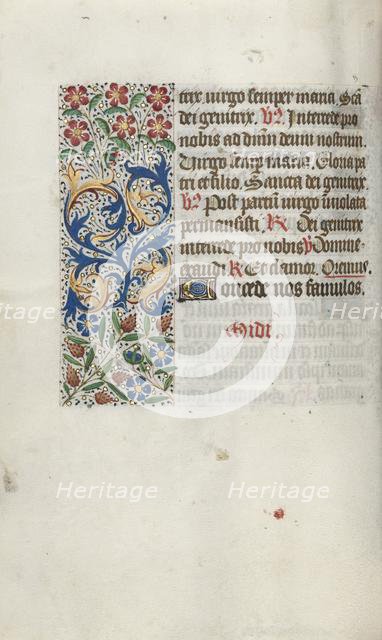 trix virgo semper maria. Scā
dei genitrix. V̷. Intercede pro
nobis ad dūm deum nostrum.
Virgo semp maria. Gloria pa
tri et filio. Sancta dei genitrix.
V̷. Post partum virgo inviolata
permansisti. R̷. Dei genitrix
intercede pro nobis. V̷ Domine
exaudi R̷ Et clamor. Oremus.
Concede nos famulos.
Midi
Heritage Heritage Heritage
Heritage Heritage